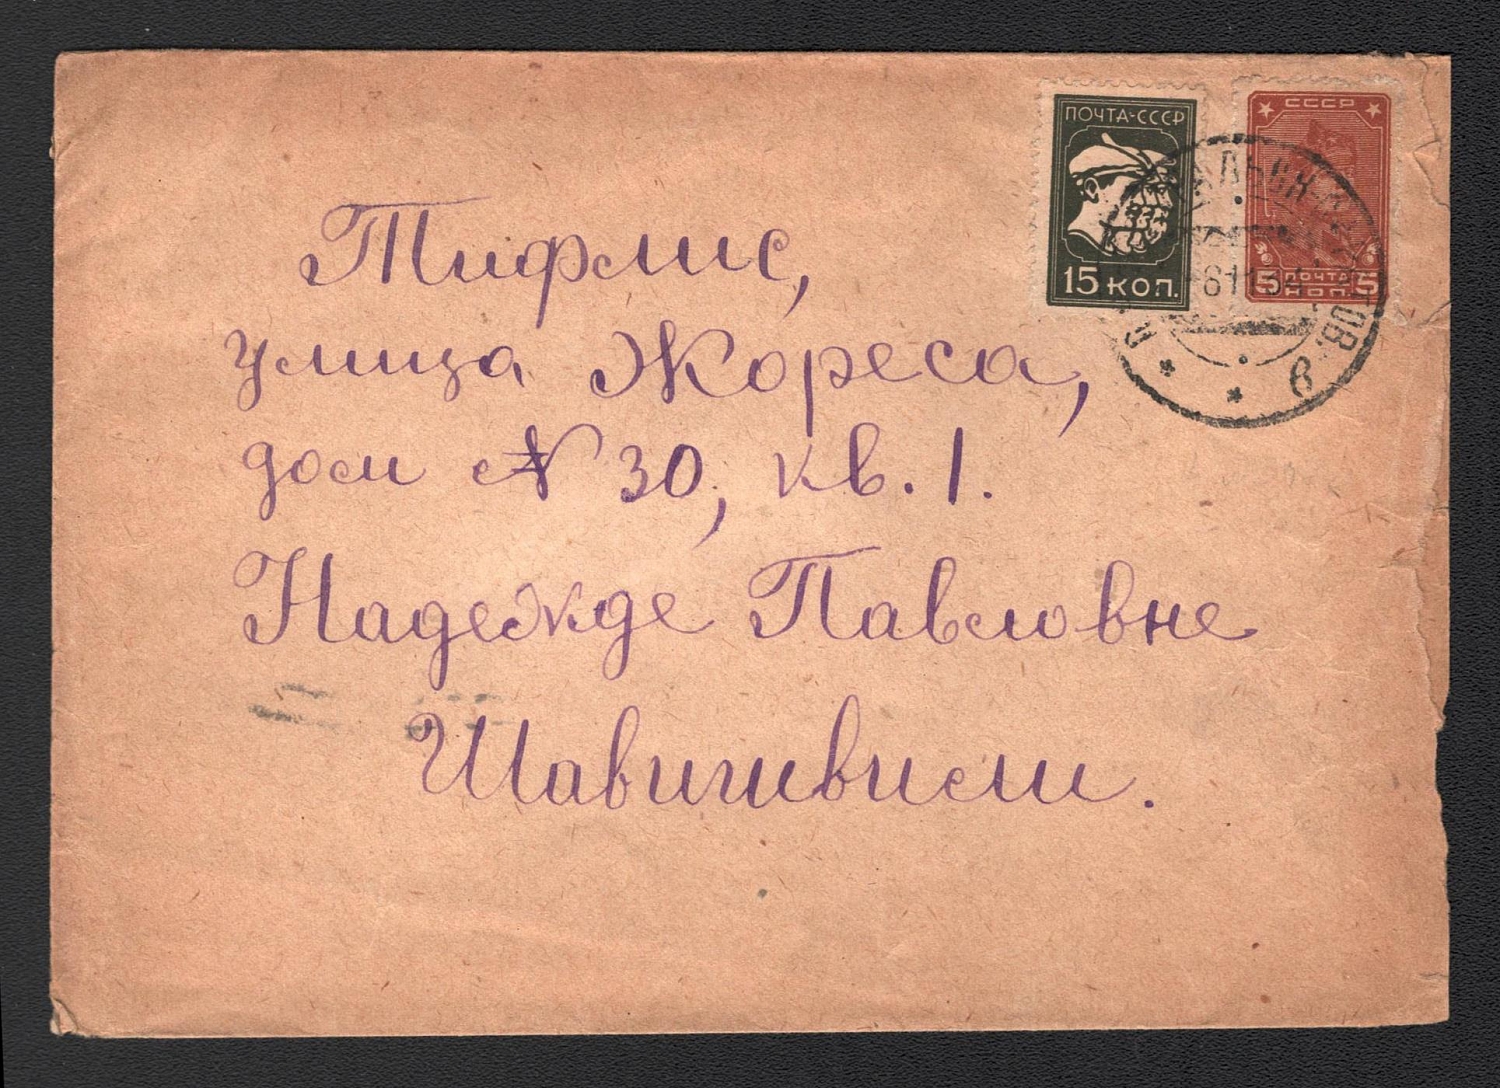 ПОЧТА-СССР
15 КОП.
СССР
5 ПОЧТА 5
КОП.
Тифлис,
улица Жореса,
дом № 30, кв. 1.
Надежде Павловне
Шавишвили.